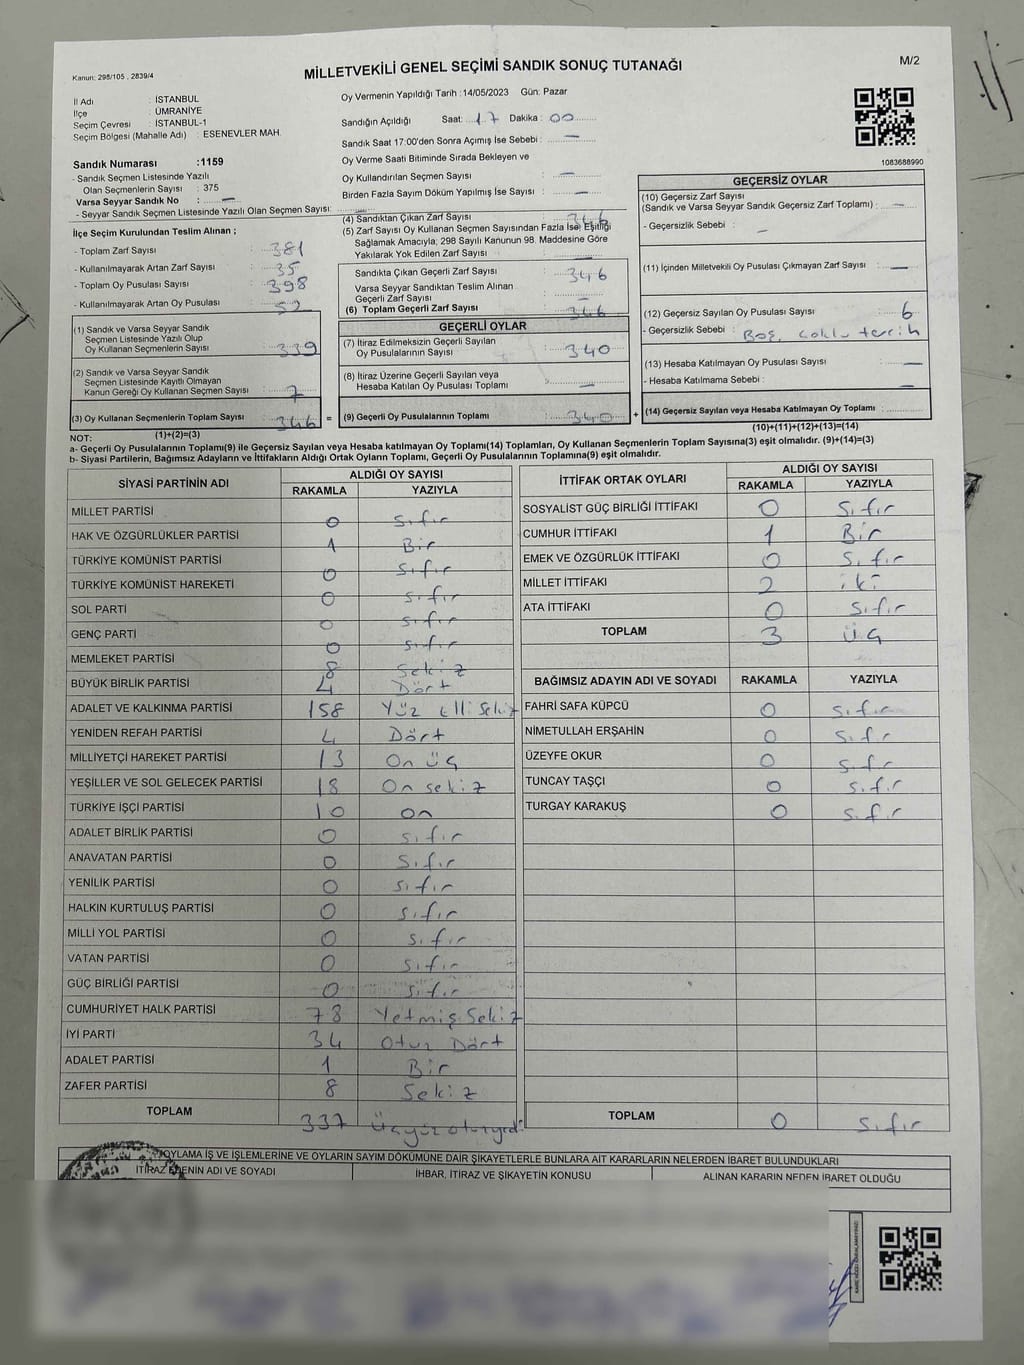 Kanun: 298/105 , 2839/4
MİLLETVEKİLİ GENEL SEÇİMİ SANDIK SONUÇ TUTANAĞI
M/2
İl Adı : İSTANBUL
İlçe : ÜMRANİYE
Seçim Çevresi : İSTANBUL-1
Seçim Bölgesi (Mahalle Adı) : ESENEVLER MAH.
Sandık Numarası :1159
- Sandık Seçmen Listesinde Yazılı
Olan Seçmenlerin Sayısı : 375
Varsa Seyyar Sandık No : —
- Seyyar Sandık Seçmen Listesinde Yazılı Olan Seçmen Sayısı:
Oy Vermenin Yapıldığı Tarih :14/05/2023 Gün: Pazar
Sandığın Açıldığı Saat: 17 Dakika : 00
Sandık Saat 17:00'den Sonra Açımış İse Sebebi : —
Oy Verme Saati Bitiminde Sırada Bekleyen ve
Oy Kullandırılan Seçmen Sayısı : —
Birden Fazla Sayım Döküm Yapılmış İse Sayısı : —
1083688990
İlçe Seçim Kurulundan Teslim Alınan ;
- Toplam Zarf Sayısı : 381
- Kullanılmayarak Artan Zarf Sayısı : 35
- Toplam Oy Pusulası Sayısı : 398
- Kullanılmayarak Artan Oy Pusulası : 52
(1) Sandık ve Varsa Seyyar Sandık
Seçmen Listesinde Yazılı Olup
Oy Kullanan Seçmenlerin Sayısı : 339
(2) Sandık ve Varsa Seyyar Sandık
Seçmen Listesinde Kayıtlı Olmayan
Kanun Gereği Oy Kullanan Seçmen Sayısı : 7
(3) Oy Kullanan Seçmenlerin Toplam Sayısı : 346 =
(1)+(2)=(3)
(4) Sandıktan Çıkan Zarf Sayısı : 346
(5) Zarf Sayısı Oy Kullanan Seçmen Sayısından Fazla İse; Eşitliği
Sağlamak Amacıyla; 298 Sayılı Kanunun 98. Maddesine Göre
Yakılarak Yok Edilen Zarf Sayısı : —
Sandıkta Çıkan Geçerli Zarf Sayısı : 346
Varsa Seyyar Sandıktan Teslim Alınan
Geçerli Zarf Sayısı : —
(6) Toplam Geçerli Zarf Sayısı : 346
GEÇERLİ OYLAR
(7) İtiraz Edilmeksizin Geçerli Sayılan
Oy Pusulalarının Sayısı : 340
(8) İtiraz Üzerine Geçerli Sayılan veya
Hesaba Katılan Oy Pusulası Toplamı : —
(9) Geçerli Oy Pusulalarının Toplamı : 340 +
GEÇERSİZ OYLAR
(10) Geçersiz Zarf Sayısı
(Sandık ve Varsa Seyyar Sandık Geçersiz Zarf Toplamı) : —
- Geçersizlik Sebebi : —
(11) İçinden Milletvekili Oy Pusulası Çıkmayan Zarf Sayısı : —
(12) Geçersiz Sayılan Oy Pusulası Sayısı : 6
- Geçersizlik Sebebi : Boş, çoklu tercih
(13) Hesaba Katılmayan Oy Pusulası Sayısı : —
- Hesaba Katılmama Sebebi : —
(14) Geçersiz Sayılan veya Hesaba Katılmayan Oy Toplamı :
(10)+(11)+(12)+(13)=(14)
NOT:
a- Geçerli Oy Pusulalarının Toplamı(9) ile Geçersiz Sayılan veya Hesaba katılmayan Oy Toplamı(14) Toplamları, Oy Kullanan Seçmenlerin Toplam Sayısına(3) eşit olmalıdır. (9)+(14)=(3)
b- Siyasi Partilerin, Bağımsız Adayların ve İttifakların Aldığı Ortak Oyların Toplamı, Geçerli Oy Pusulalarının Toplamına(9) eşit olmalıdır.
SİYASİ PARTİNİN ADI ALDIĞI OY SAYISI
RAKAMLA YAZIYLA
MİLLET PARTİSİ 0 sıfır
HAK VE ÖZGÜRLÜKLER PARTİSİ 1 Bir
TÜRKİYE KOMÜNİST PARTİSİ 0 sıfır
TÜRKİYE KOMÜNİST HAREKETİ 0 sıfır
SOL PARTİ 0 sıfır
GENÇ PARTİ 0 sıfır
MEMLEKET PARTİSİ 8 Sekiz
BÜYÜK BİRLİK PARTİSİ 4 Dört
ADALET VE KALKINMA PARTİSİ 158 Yüz elli sekiz
YENİDEN REFAH PARTİSİ 4 Dört
MİLLİYETÇİ HAREKET PARTİSİ 13 On üç
YEŞİLLER VE SOL GELECEK PARTİSİ 18 On sekiz
TÜRKİYE İŞÇİ PARTİSİ 10 on
ADALET BİRLİK PARTİSİ 0 sıfır
ANAVATAN PARTİSİ 0 sıfır
YENİLİK PARTİSİ 0 sıfır
HALKIN KURTULUŞ PARTİSİ 0 sıfır
MİLLİ YOL PARTİSİ 0 sıfır
VATAN PARTİSİ 0 sıfır
GÜÇ BİRLİĞİ PARTİSİ 0 sıfır
CUMHURİYET HALK PARTİSİ 78 Yetmiş Sekiz
İYİ PARTİ 34 Otuz Dört
ADALET PARTİSİ 1 Bir
ZAFER PARTİSİ 8 Sekiz
TOPLAM 337 üçyüzotuzyedi
İTTİFAK ORTAK OYLARI ALDIĞI OY SAYISI
RAKAMLA YAZIYLA
SOSYALİST GÜÇ BİRLİĞİ İTTİFAKI 0 Sıfır
CUMHUR İTTİFAKI 1 Bir
EMEK VE ÖZGÜRLÜK İTTİFAKI 0 Sıfır
MİLLET İTTİFAKI 2 iki
ATA İTTİFAKI 0 Sıfır
TOPLAM 3 üç
BAĞIMSIZ ADAYIN ADI VE SOYADI RAKAMLA YAZIYLA
FAHRİ SAFA KÜPCÜ 0 sıfır
NİMETULLAH ERŞAHİN 0 sıfır
ÜZEYFE OKUR 0 sıfır
TUNCAY TAŞÇI 0 sıfır
TURGAY KARAKUŞ 0 sıfır
TOPLAM 0 sıfır
OYLAMA İŞ VE İŞLEMLERİNE VE OYLARIN SAYIM DÖKÜMÜNE DAİR ŞİKAYETLERLE BUNLARA AİT KARARLARIN NELERDEN İBARET BULUNDUKLARI
İTİRAZ EDENİN ADI VE SOYADI İHBAR, İTİRAZ VE ŞİKAYETİN KONUSU ALINAN KARARIN NEDEN İBARET OLDUĞU